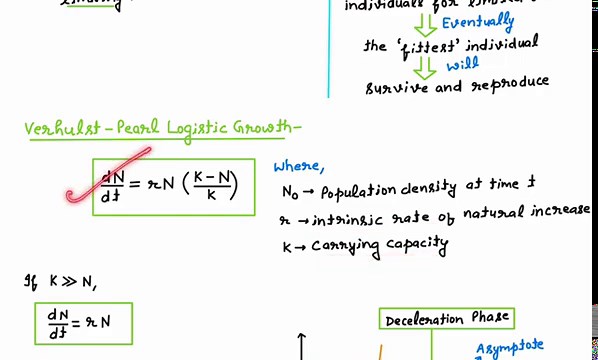 individuals for
Eventually
the 'fittest' individual
will
survive and reproduce
Verhulst - Pearl Logistic Growth -
dN/dt = rN (K-N/K)
where,
N₀ → Population density at time t
r → intrinsic rate of natural increase
K → Carrying capacity
If K >> N,
dN/dt = rN
Deceleration Phase
Asymptote